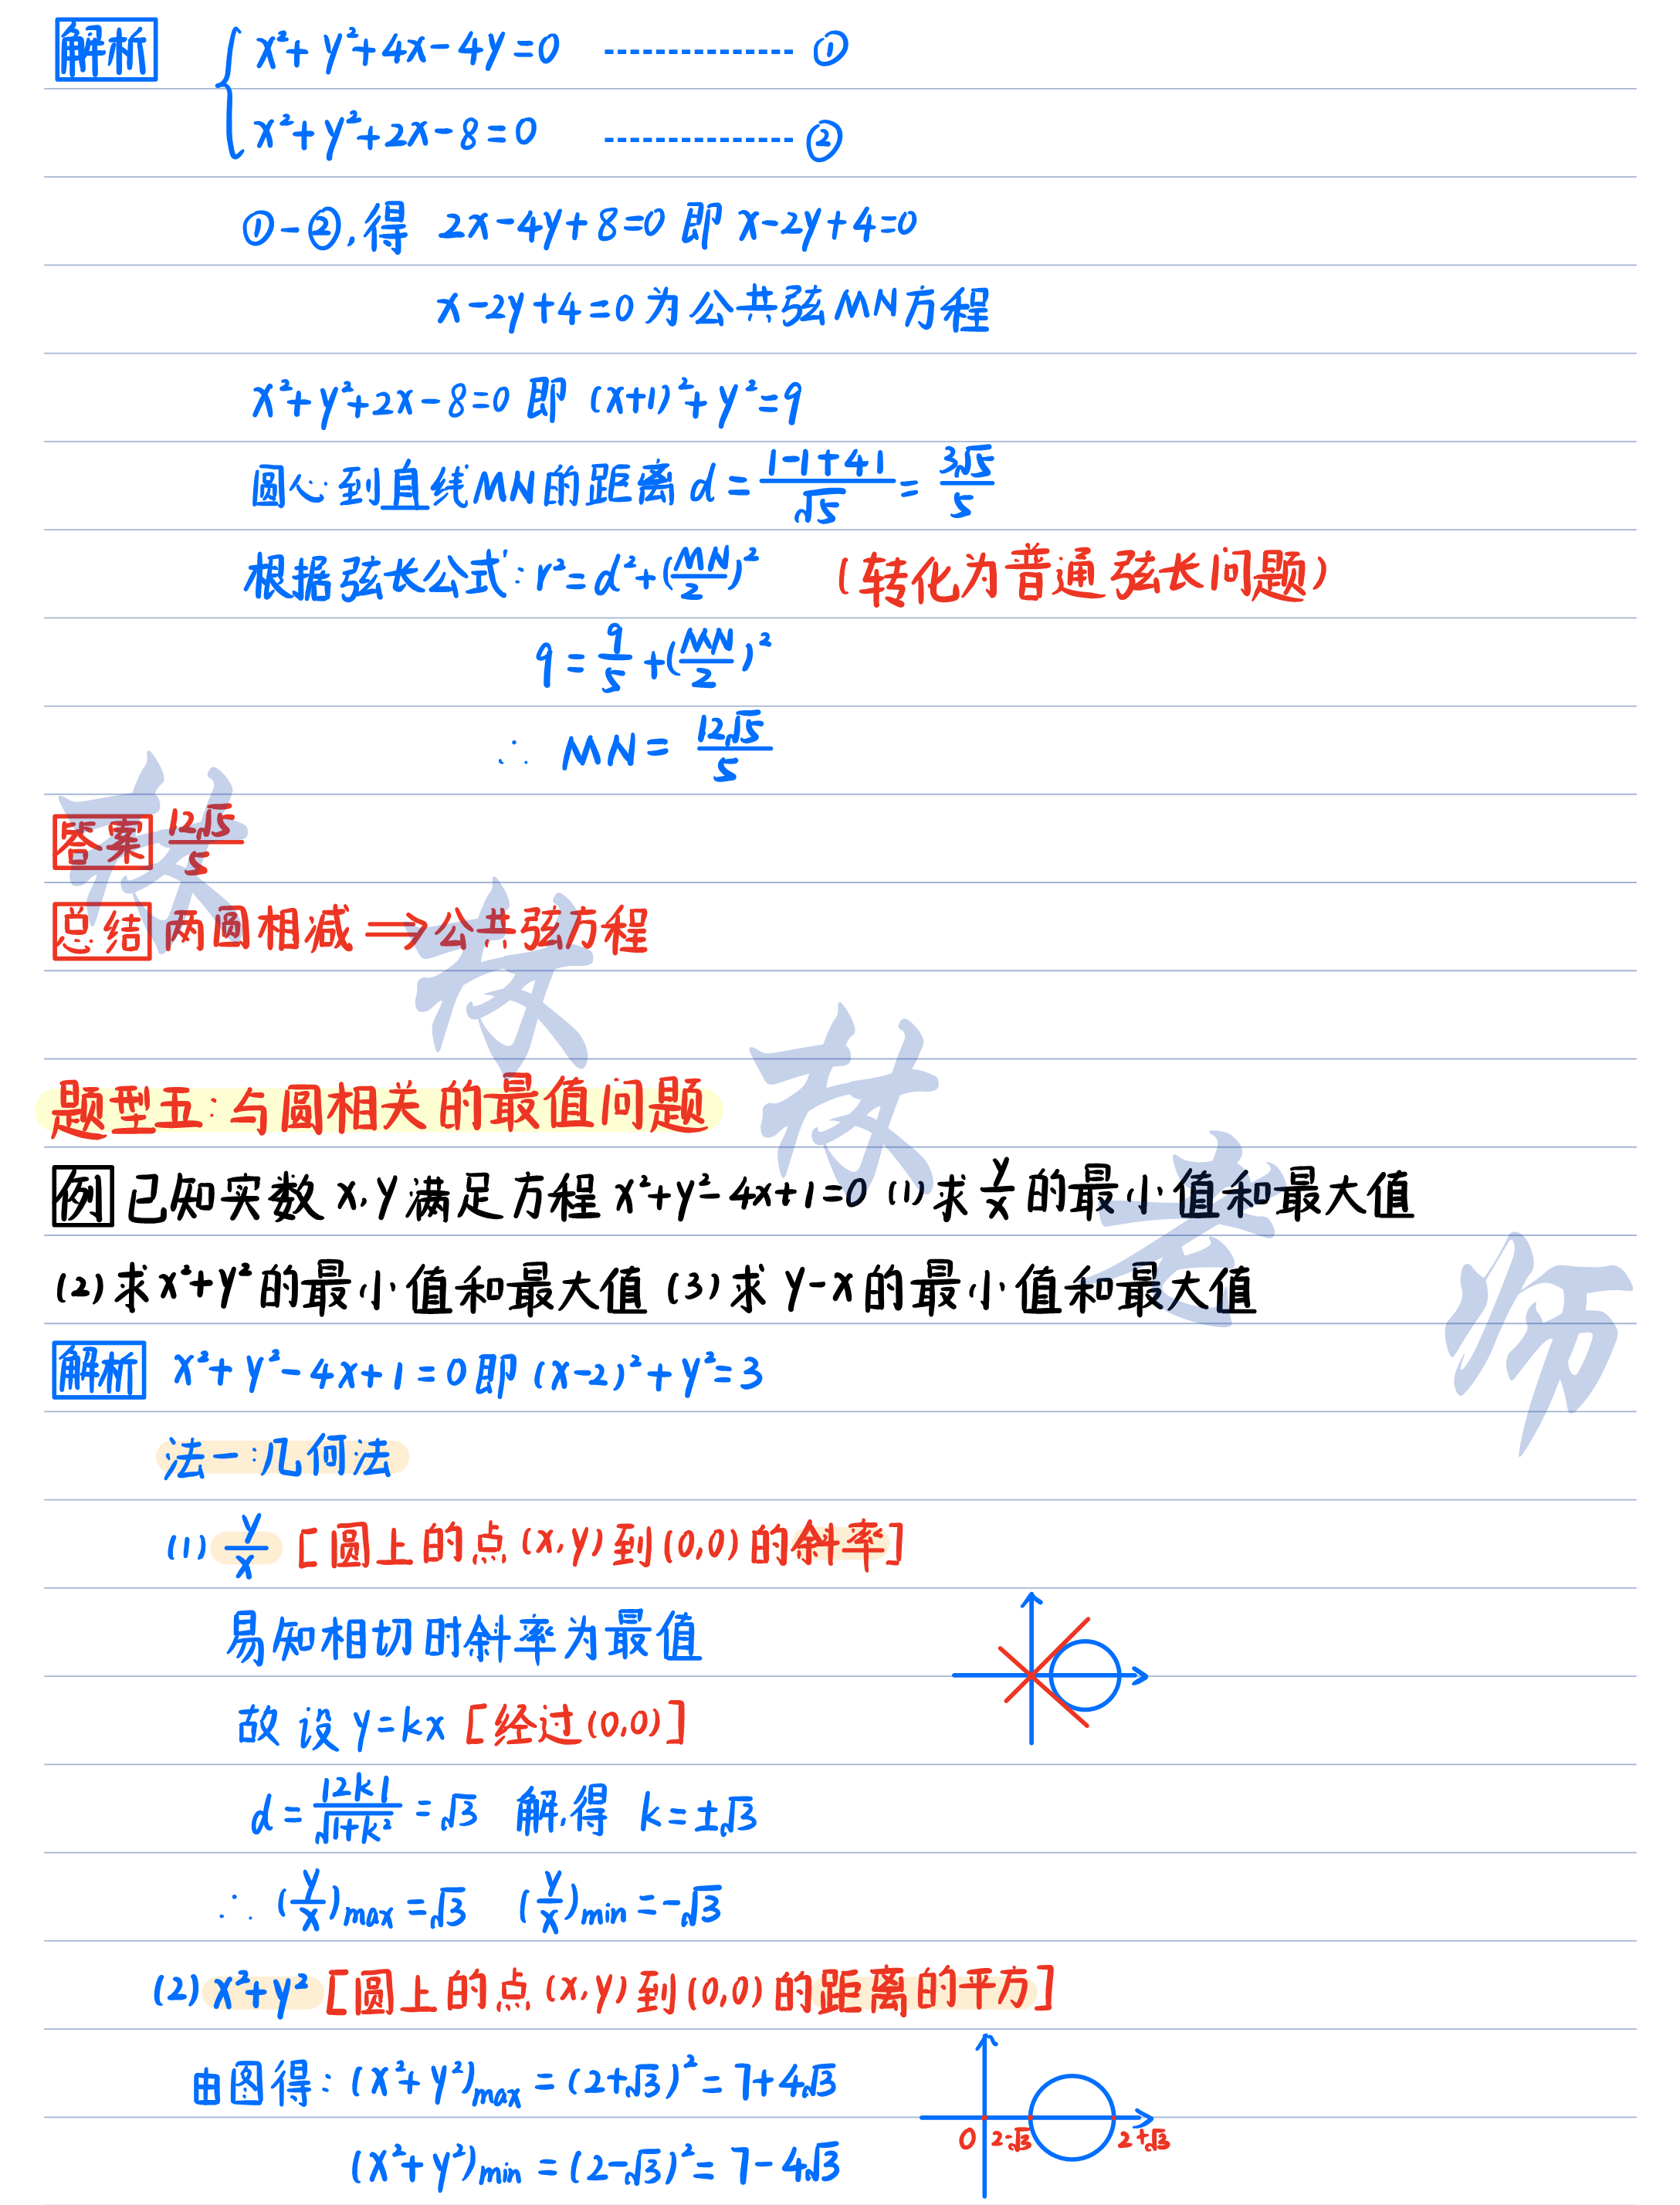 解析 { x²+y²+4x-4y=0 -------------- ①
x²+y²+2x-8=0 -------------- ②
①-②,得 2x-4y+8=0 即 x-2y+4=0
x-2y+4=0 为公共弦MN方程
x²+y²+2x-8=0 即 (x+1)²+y²=9
圆心到直线MN的距离 d=|-1+4|/√5=3√5/5
根据弦长公式: r²=d²+(MN/2)² (转化为普通弦长问题)
9=9/5+(MN/2)²
∴ MN=12√5/5
答案 12√5/5
总结 两圆相减⟹公共弦方程
题型五:与圆相关的最值问题
例 已知实数 x,y 满足方程 x²+y²-4x+1=0 (1)求 y/x 的最小值和最大值
(2)求 x²+y² 的最小值和最大值 (3)求 y-x 的最小值和最大值
解析 x²+y²-4x+1=0 即 (x-2)²+y²=3
法一:几何法
(1) y/x [圆上的点(x,y)到(0,0)的斜率]
易知相切时斜率为最值
故设 y=kx [经过(0,0)]
d=|2k|/√(1+k²)=√3 解,得 k=±√3
∴ (y/x)max=√3 (y/x)min=-√3
(2) x²+y² [圆上的点(x,y)到(0,0)的距离的平方]
由图得: (x²+y²)max=(2+√3)²=7+4√3
0 2-√3 2+√3
(x²+y²)min=(2-√3)²=7-4√3
林林林老师